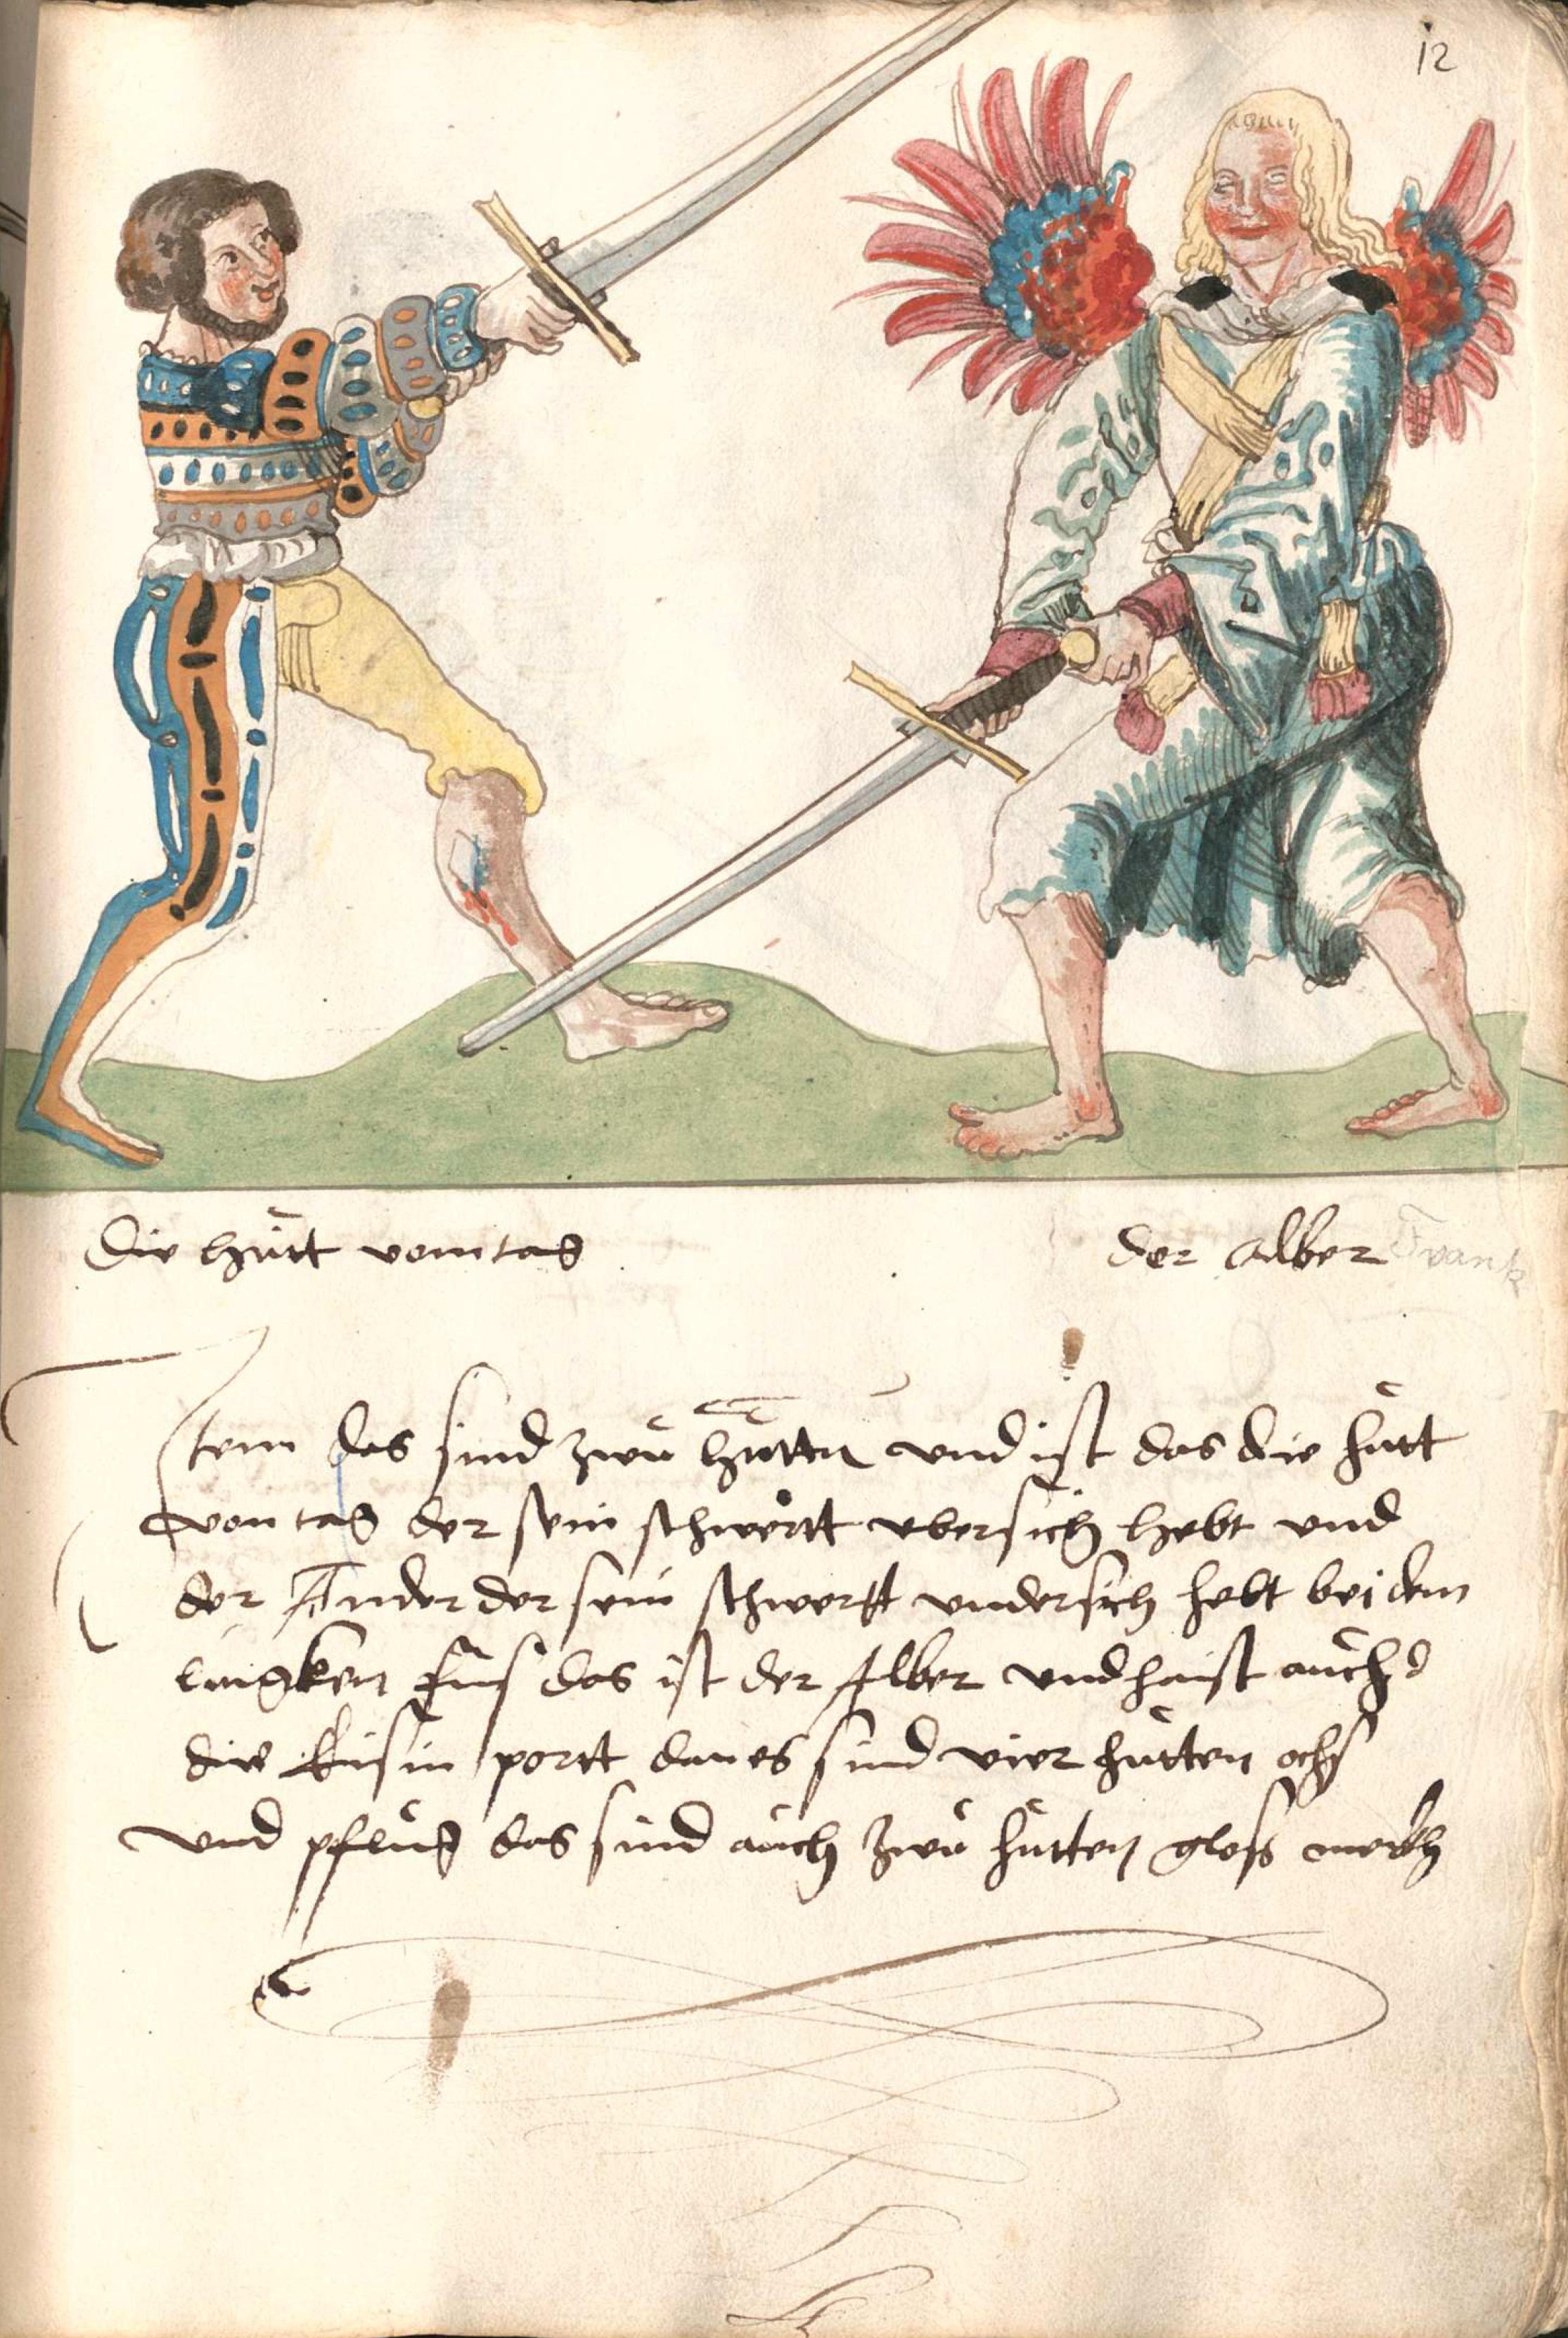 12
Die hütt vom tag
der Alber Frank
Item das sind zwu hütten und ist das die hütt
von tag der sein schwertt ubersich hebt und
der Ander der sein schwertt undersich hebt bei dem
lingken fus das ist der Alber und haist auch
die Eisin portt dan es sind vier hütten ochs
und pflug das sind auch zwu hütten gloss merkh